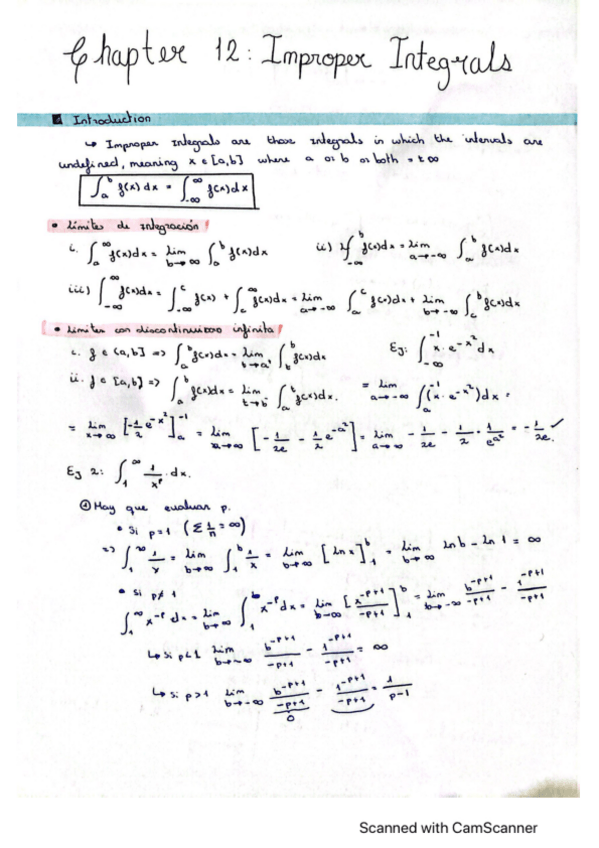 Chapter 12: Improper Integrals
Introduction
↳ Improper Integrals are those integrals in which the intervals are
undefined, meaning x ∈ [a,b] where a or b or both = ±∞
∫_a^b f(x) dx = ∫_{-∞}^∞ f(x) dx
• Límites de integración
i. ∫_a^∞ f(x)dx = lim_{b→∞} ∫_a^b f(x)dx ii) ∫_{-∞}^b f(x)dx = lim_{a→-∞} ∫_a^b f(x)dx
iii) ∫_{-∞}^∞ f(x)dx = ∫_{-∞}^c f(x) + ∫_c^∞ f(x)dx = lim_{a→-∞} ∫_a^c f(x)dx + lim_{b→-∞} ∫_c^b f(x)dx
• Límites con discontinuidad infinita
i. f ∈ (a,b] => ∫_a^b f(x)dx = lim_{t→a} ∫_t^b f(x)dx Ej: ∫_{-∞}^{-1} x·e^{-x²} dx
ii. f ∈ [a,b] => ∫_a^b f(x)dx = lim_{t→b} ∫_a^b f(x)dx. = lim_{a→-∞} ∫_a^{-1} (x·e^{-x²})dx =
= lim_{x→∞} [-1/2 e^{-x²}]_a^{-1} = lim_{a→∞} [-1/2e - 1/2 e^{-a²}] = lim_{a→∞} -1/2e - 1/2 · 1/e^{a²} = -1/2e. ✓
Ej 2: ∫_1^∞ 1/x^p dx.
① Hay que evaluar p.
• Si p=1 (Σ 1/n = ∞)
=> ∫_1^∞ 1/x = lim_{b→∞} ∫_1^b 1/x = lim_{b→∞} [ln x]_1^b = lim_{b→∞} ln b - ln 1 = ∞
• Si p≠1
∫_1^∞ x^{-p} dx = lim_{b→∞} ∫_1^b x^{-p} dx = lim_{b→∞} [x^{-p+1}/-p+1]_1^b = lim_{b→-∞} b^{-p+1}/-p+1 - 1^{-p+1}/-p+1
↳ Si p<1 lim_{b→-∞} b^{-p+1}/-p+1 - 1^{-p+1}/-p+1 = ∞
↳ Si p>1 lim_{b→-∞} b^{-p+1}/-p+1 - 1^{-p+1}/-p+1 = 1/p-1
0
Scanned with CamScanner